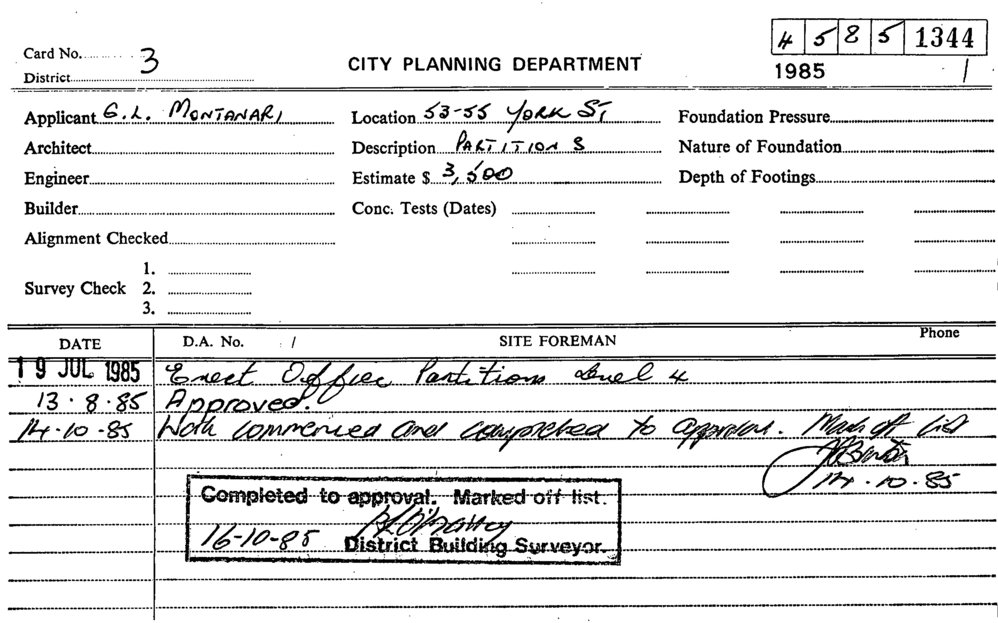 4 5 8 5 1344
Card No. 3
CITY PLANNING DEPARTMENT
1985 /
District
Applicant G. L. MONTANARI Location 53-55 YORK ST Foundation Pressure
Architect Description PARTITIONS Nature of Foundation
Engineer Estimate $ 3,500 Depth of Footings
Builder Conc. Tests (Dates)
Alignment Checked
1.
Survey Check 2.
3.
DATE D.A. No. / SITE FOREMAN Phone
19 JUL 1985 Erect Office Partitions Level 4
13.8.85 Approved.
14-10-85 Work commenced and completed to approval. Mark off list
14.10.85
Completed to approval. Marked off list.
16-10-85
District Building Surveyor.